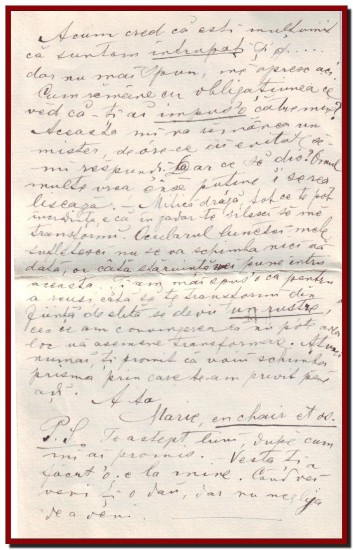 Acum cred că ești mulțumit
că suntem întrupați și ....
dar nu mai spun, mă opresc aci.
Cum rămâne cu obligațiunea ce
văd că-ți ai impus'o către mine?
Aceasta mi va rămânea un
mister, de óre-ce ai evitat
mi răspundi. Dar ce să dic? Omul
multe vrea ense puține
. – Milică dragă, tot ce te pot
incredința, e că în zadar te silesci să me
transformi. Ocularul lunetei mele
sufletesci nu se va schimba nici o
dată, ori cata stăruință vei pune întru
aceasta. Ți-am mai spus'o că pentru
a reuși, cată să te transformi din
ființă de elită să devii un rustre,
ceea ce am convingerea că nu pot avea
loc nă asemene transformare. Atunci
numai, ți promit că voiu schimba
prisma prin care te-am privit pân
adi. A ta
Marie, en chair et os.
P.S. Te aștept luni, după cum
mi ai promis. Vesta ți a
făcut'o, e la mine. Când vei
veni ți o dau, dar nu neglija
de a veni.